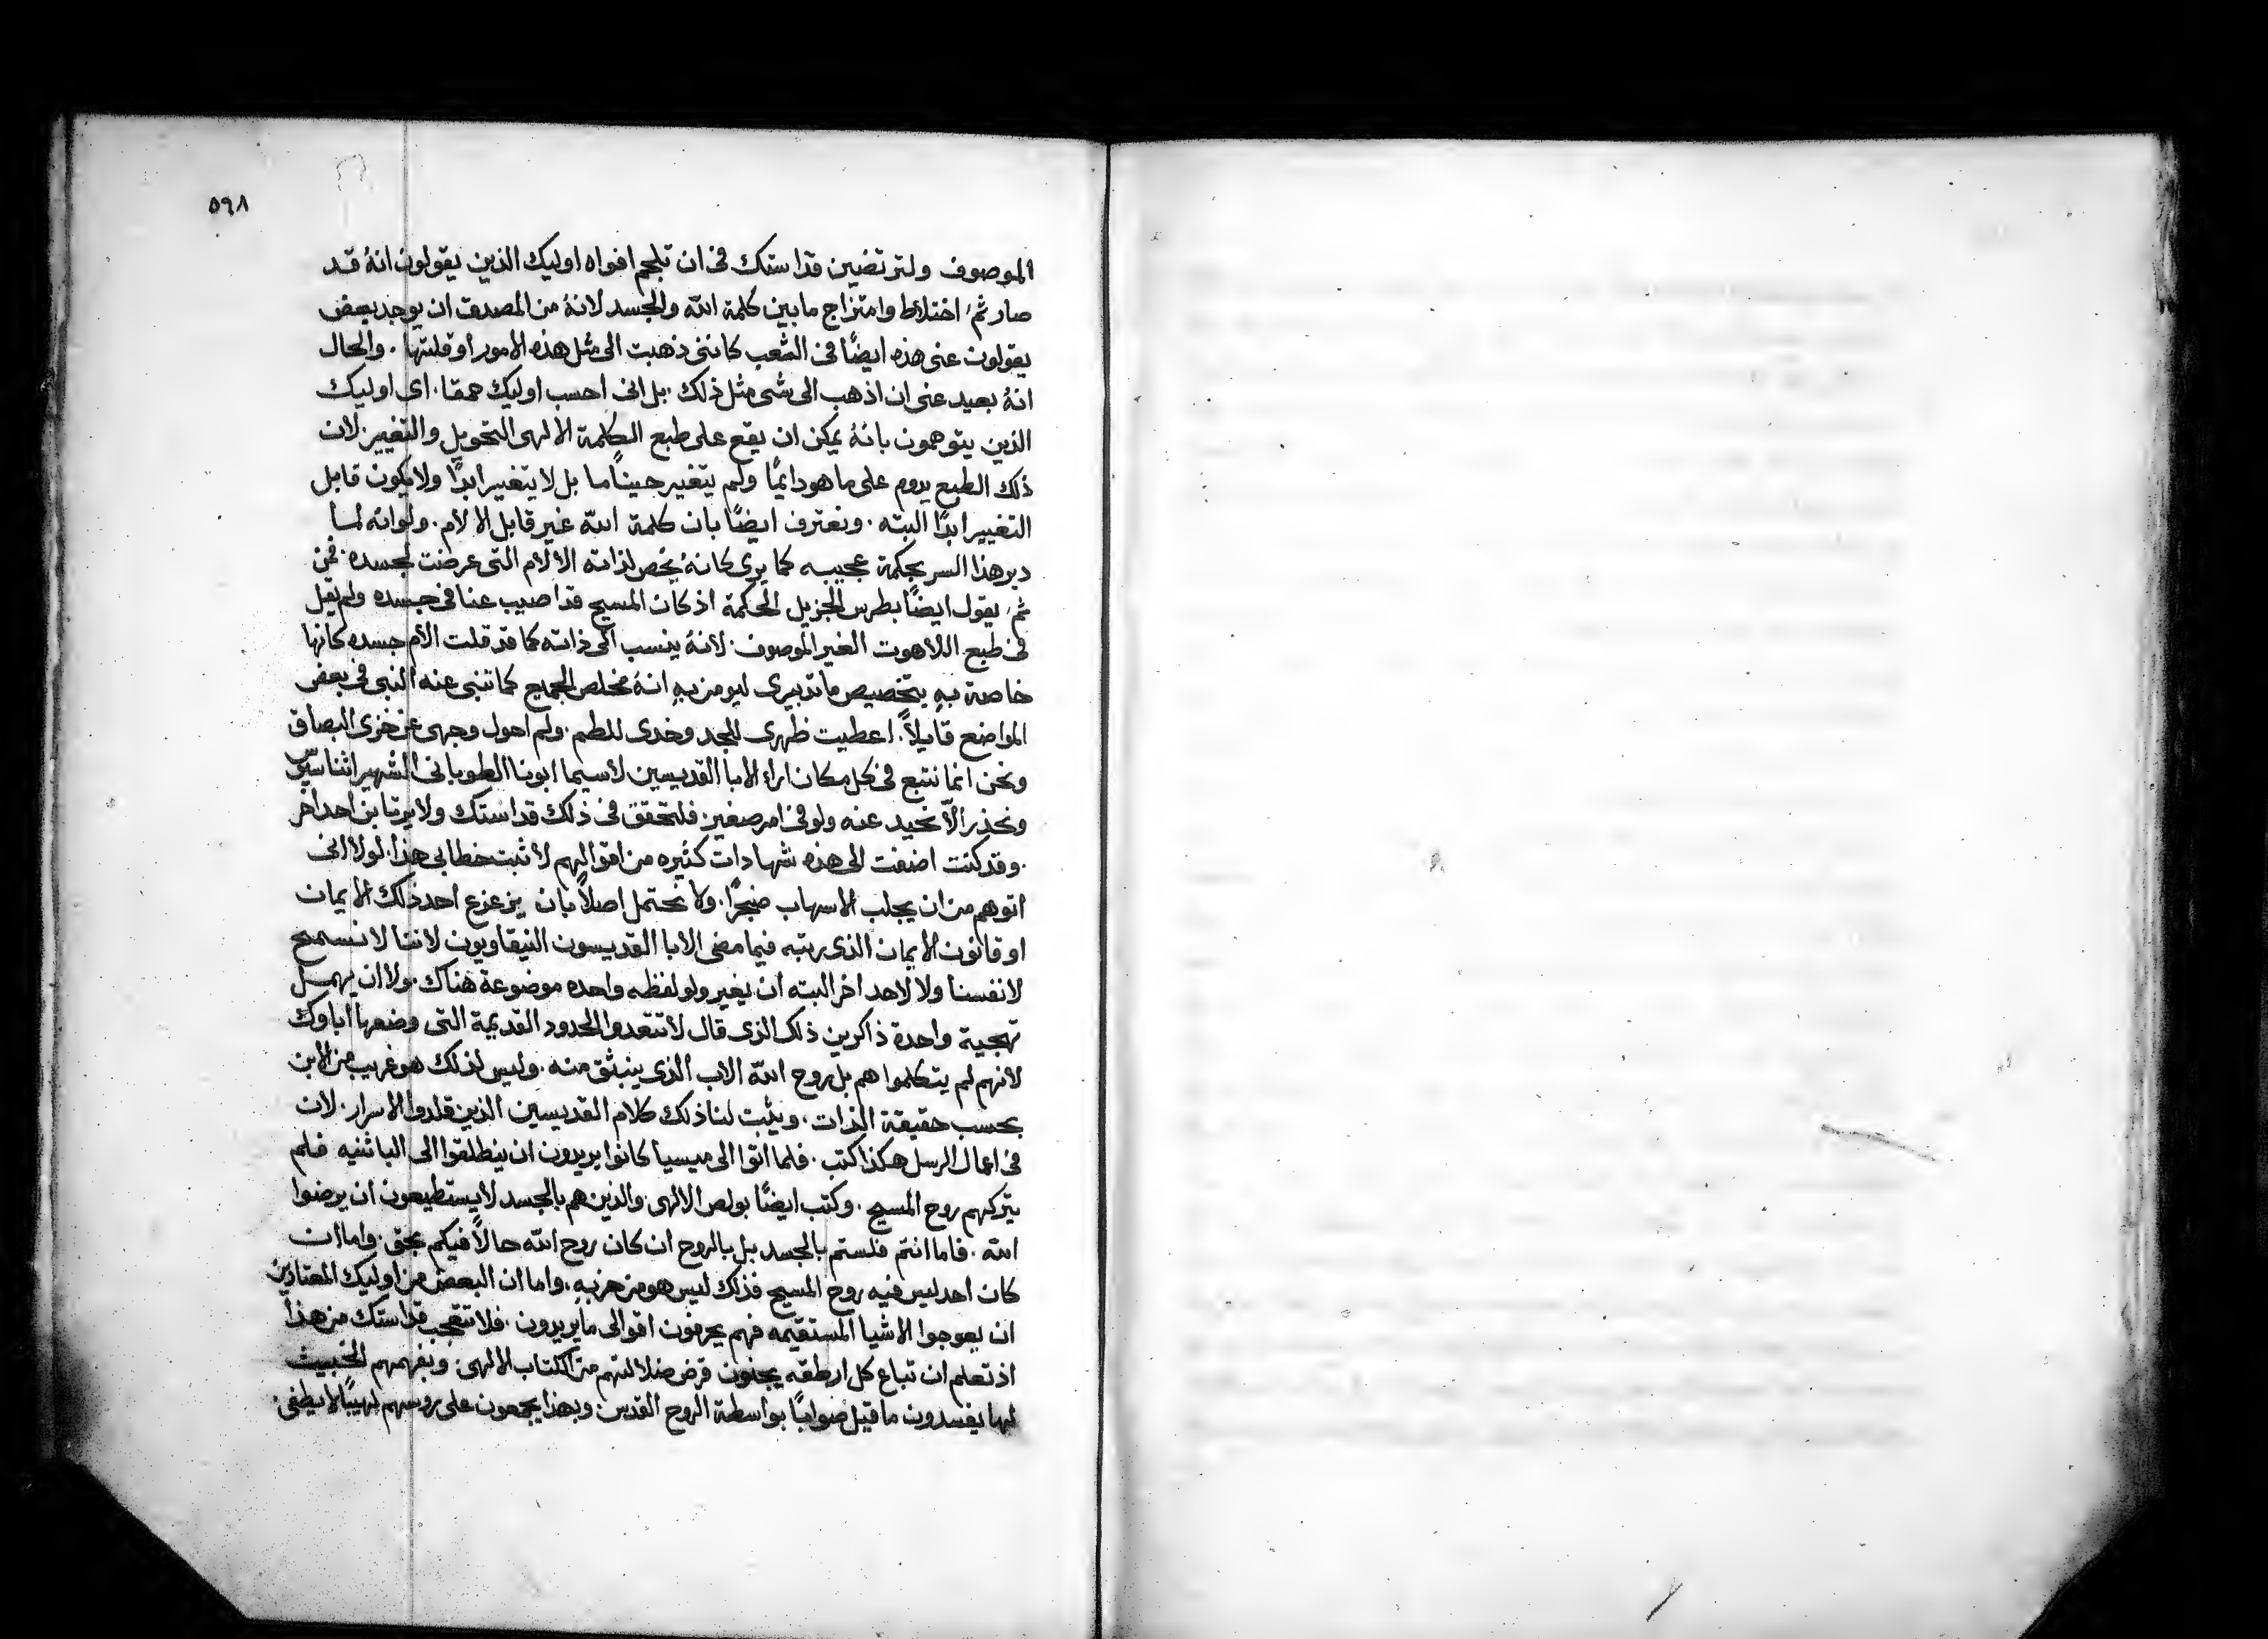 ٥٩٨
الموصوف ولترتضين قداستك في ان تلجم افواه اوليك الذين يقولون انهُ قد
صار ثم اختلاط وامتزاج ما بين كلمة الله والجسد لانهُ من المصدق ان يوجد بعض
يقولون عني هذه ايضًا في الشعب كانني ذهبت الى مثل هذه الامور او قلتها. والحال
انهُ بعيد عني ان اذهب الى شي مثل ذلك. بل اني احسب اوليك حمقا. اي اوليك
الذين يتوهمون بانهُ يمكن ان يقع على طبع الكلمة الالهي التحويل والتغيير. لان
ذلك الطبع يدوم على ما هو دايمًا ولم يتغير حينًا ما بل لا يتغير ابدًا ولا يكون قابل
التغيير ابدًا البته. ونعترف ايضًا بان كلمة الله غير قابل الالام. ولو انه لما
دبر هذا السر بحكمة عجيبه كما يرى كانهُ يخص لذاته الالام التي عرضت لجسده. فمن
ثم يقول ايضًا بطرس الجزيل الحكمة اذ كان المسيح قد اصيب عنا في جسده ولم يقل
في طبع اللاهوت الغير الموصوف. لانهُ ينسب الى ذاته كما قد قلت الام جسده كانها
خاصة بهِ بتخصيص ما تدبيري ليومن بهِ انهُ مخلص الجميع كما تنبى عنه النبي في بعض
المواضع قايلاً. اعطيت ظهري للجلد وخدي للطم. ولم احول وجهي عن خزي البصاق
ونحن انما نتبع في كل مكان اراء الابا القديسين لاسيما ابونا الطوباني الشهير اثناسيوس
ونحذر الاّ نحيد عنه ولو في امر صغير. فلتحقق في ذلك قداستك ولا يرتابن احد اخر
. وقد كنت اضفت الى هذه شهادات كثيره من اقوالهم لاثبت خطابي هذا. لولا اني
اتوهم من ان يجلب الاسهاب ضجرًا. ولا نحتمل اصلاً بان يزعزع احد ذلك الايمان
او قانون الايمان الذي رتبه فيما مضى الابا القديسون النيقاويون لاننا لا نسمح
لانفسنا ولا لاحد اخر البته ان يغير ولو لفظه واحده موضوعة هناك. ولا ان يهمل
تهجية واحدة ذاكرين ذلك الذي قال لا تتعدوا الحدود القديمة التي وضعها اباوك
لانهم لم يتكلموا هم بل روح الله الاب الذي ينبثق منه. وليس لذلك هو غريب من الابن
بحسب حقيقة الذات. ويثبت لنا ذلك كلام القديسين الذين قلدوا الاسرار. لان
في اعمال الرسل هكذا كتب. فلما اتوا الى ميسيا كانوا يريدون ان ينطلقوا الى الباثنيه فلم
يتركهم روح المسيح. وكتب ايضًا بولص الالهي. والذين هم بالجسد لا يستطيعون ان يرضوا
الله. فاما انتم فلستم بالجسد بل بالروح ان كان روح الله حالاً فيكم بحق. واما ان
كان احد ليس فيه روح المسيح فذلك ليس هو من حزبهِ. واما ان البعض من اوليك المعتادين
ان يعوجوا الاشيا المستقيمه فهم يحرفون اقوالي ما يريدون. فلا تتعجب قداستك من هذا
اذ تعلم ان تباع كل ارطقه يجنون فرض ضلالتهم من الكتاب الالهي. وبفهمهم الخبيث
لها يفسدون ما قيل صوابًا بواسطة الروح القدس. وبهذا يجمعون على روسهم لهيبًا لا يطفى.